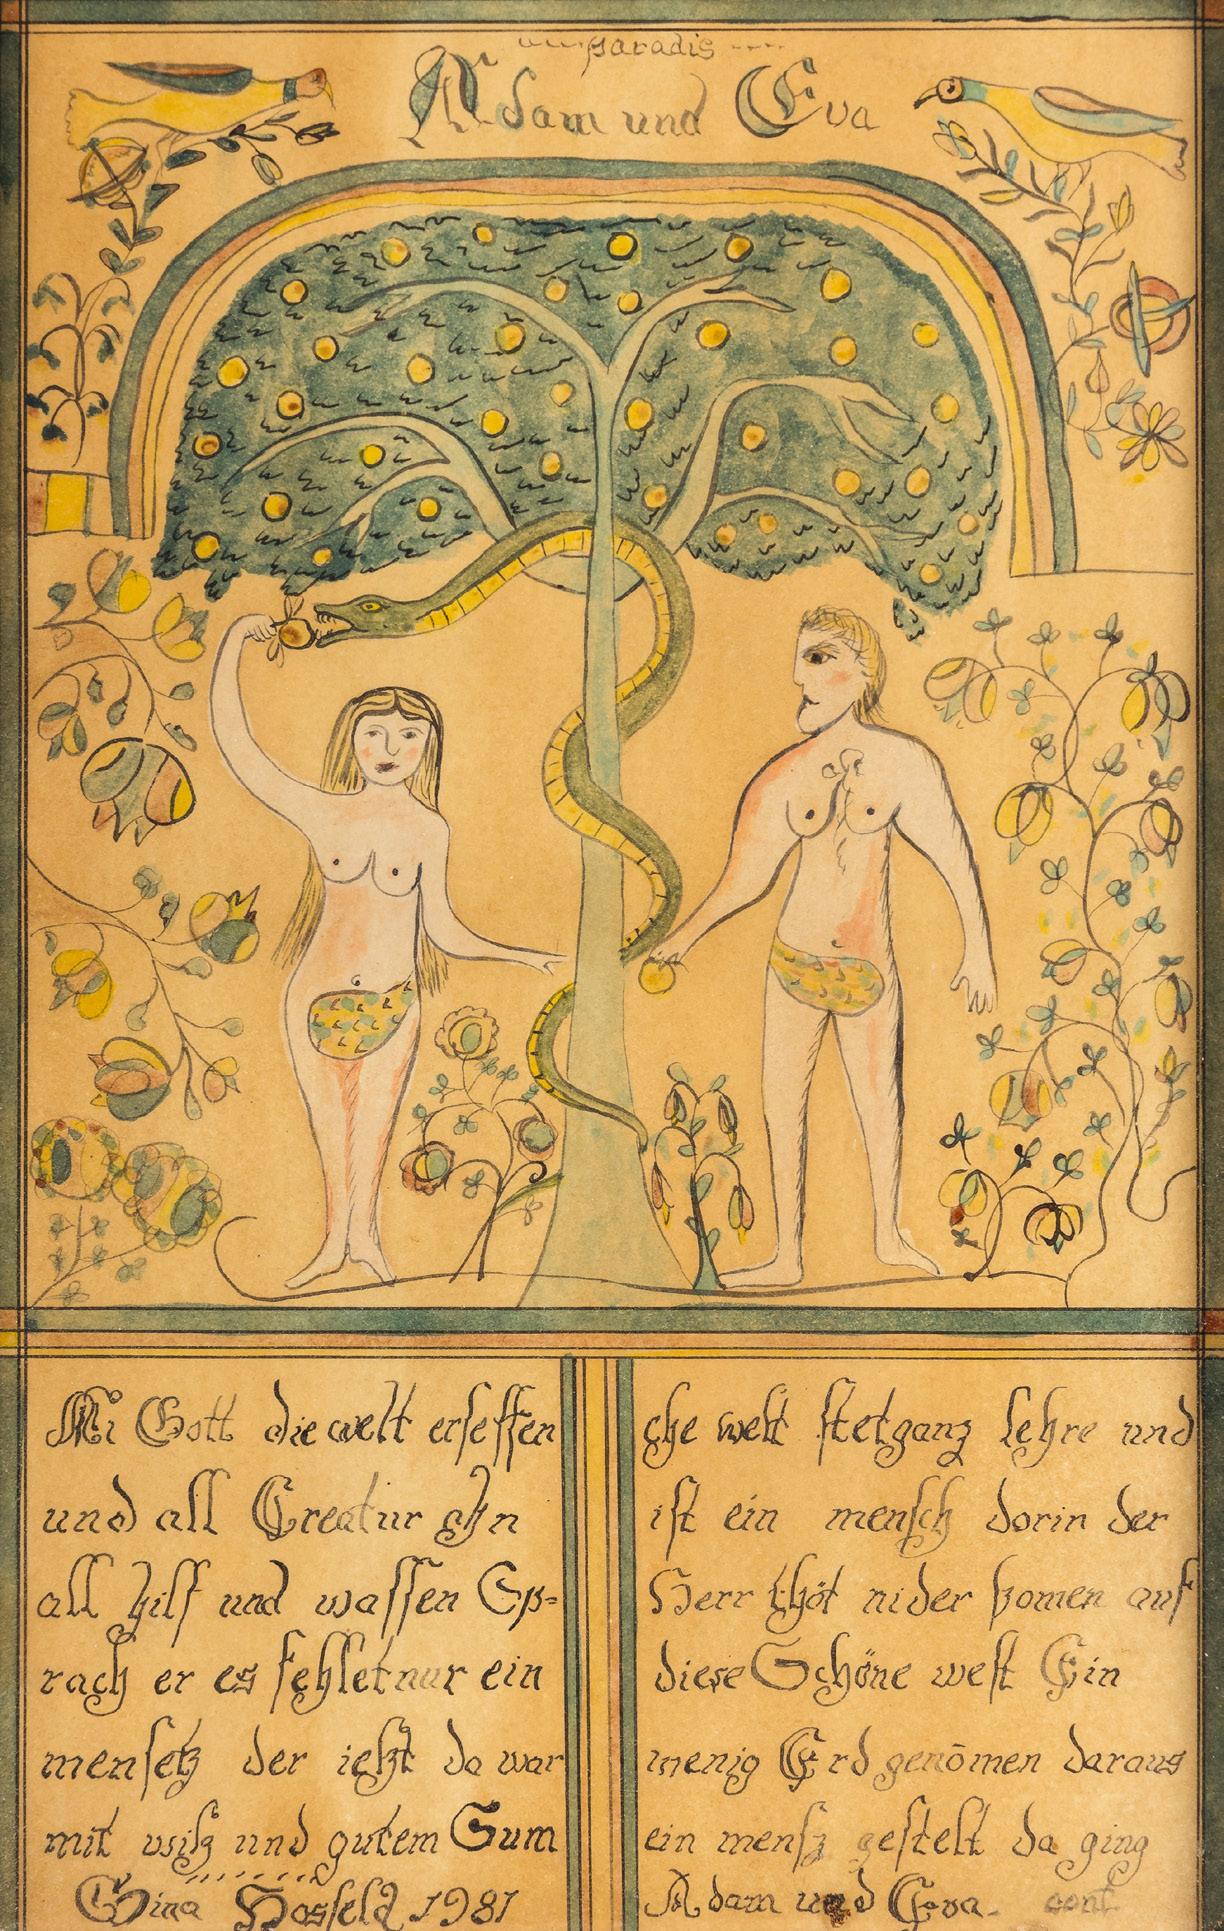 paradis
Adam und Eva
Mi Gott die welt erseffen
und all Creatur
all hilf und wassen Sp=
rach er es fehlet nur ein
mensetz der ietzt da war
mit witz und gutem Sum
Gina Hosfeld 1981
che welt stet ganz lehre und
ist ein mensch dorin der
Herr thöt nider komen auf
diese Schöne welt Ein
wenig Erd genōmen daraus
ein mensz gestelt da ging
Adam und Eva. cont